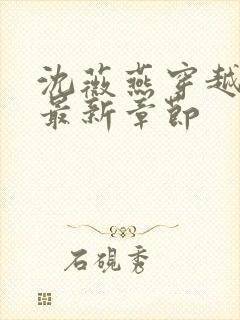 沈薇燕穿越
最新章節
石硯秀